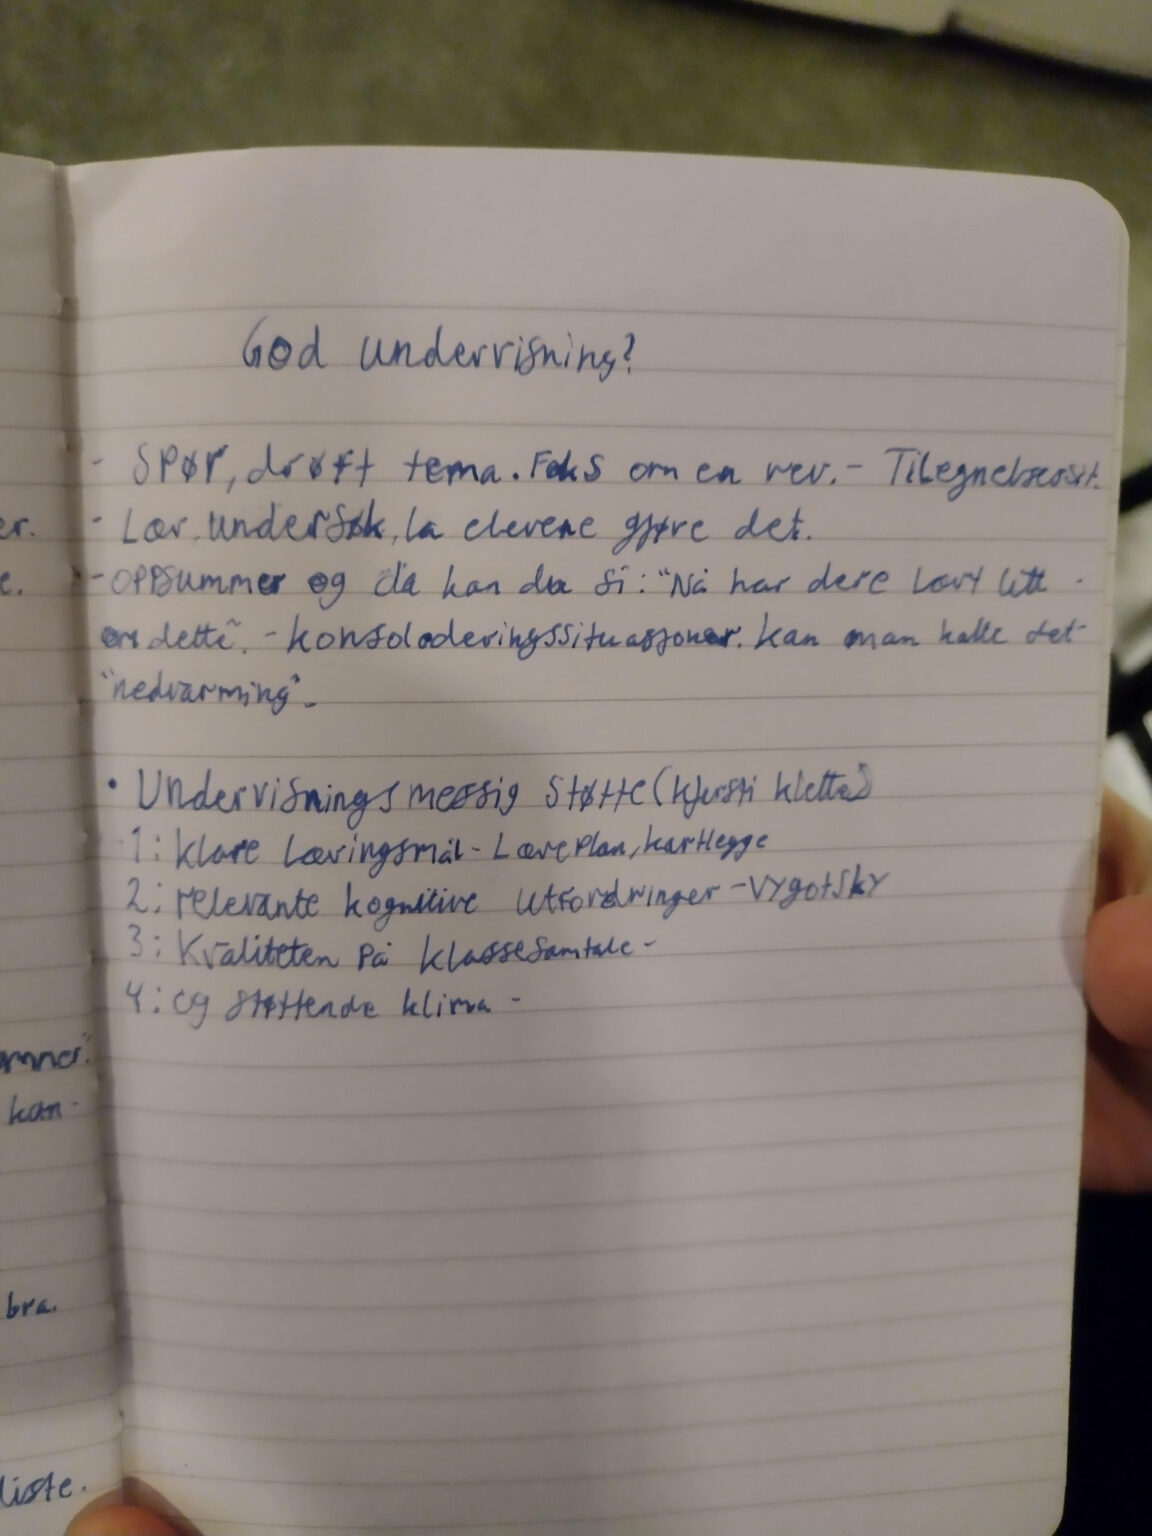 God undervisning?
- Spør, drøft tema. Feks om en rev. - Tilegnelsessit.
er.
- Lær. Undersøk, la elevene gjøre det.
e.
- Oppsummer og da kan du si: "Nå har dere lært litt
om dette". - konsoloderingssituasjoner. kan man kalle det
"nedvarming".
• Undervisningsmessig støtte (kjersti klette)
1: klare læringsmål - Læreplan, kartlegge
2: relevante kognitive utfordringer - Vygotsky
3: Kvaliteten på klassesamtale -
4: og støttende klima -
kan-
bra.
liste.